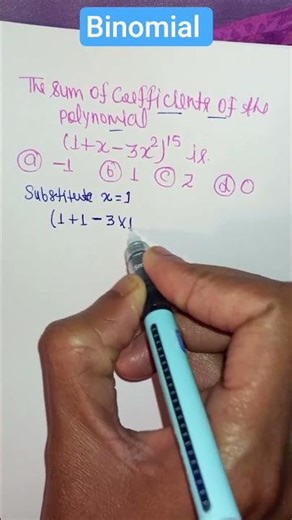 Binomial
The sum of Coefficients of the
polynomial
(1+x-3x²)¹⁵ is
ⓐ -1 ⓑ 1 ⓒ 2 ⓓ 0
Substitute x=1
(1+1-3×1